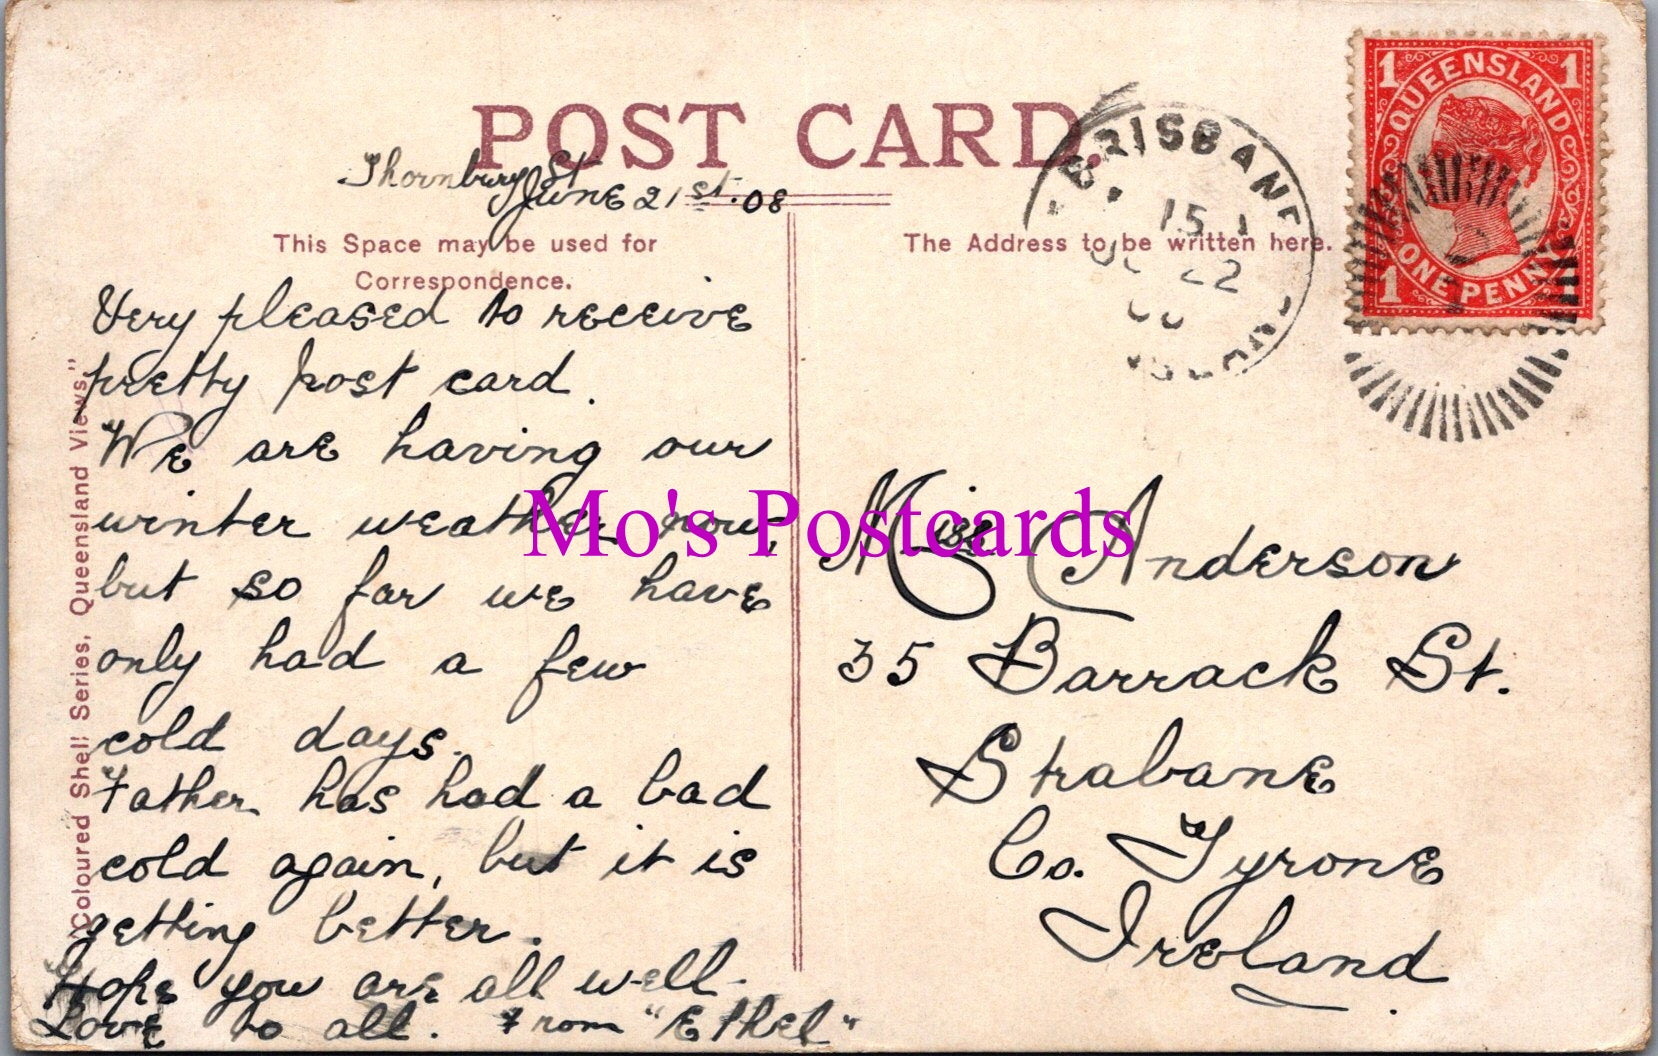 POST CARD.
Thornbury St
June 21st. 08
This Space may be used for
Correspondence.
The Address to be written here.
Very pleased to receive
pretty post card.
We are having our
winter weather now,
but so far we have
only had a few
cold days.
Father has had a bad
cold again, but it is
getting better.
Hope you are all well.
Love to all. From "Ethel"
"Coloured Shell" Series, Queensland Views."
Miss Anderson
35 Barrack St.
Strabane
Co. Tyrone
Ireland
BRISBANE
15
22
1 1
QUEENSLAND
ONE PENNY
1 1
Mo's Postcards